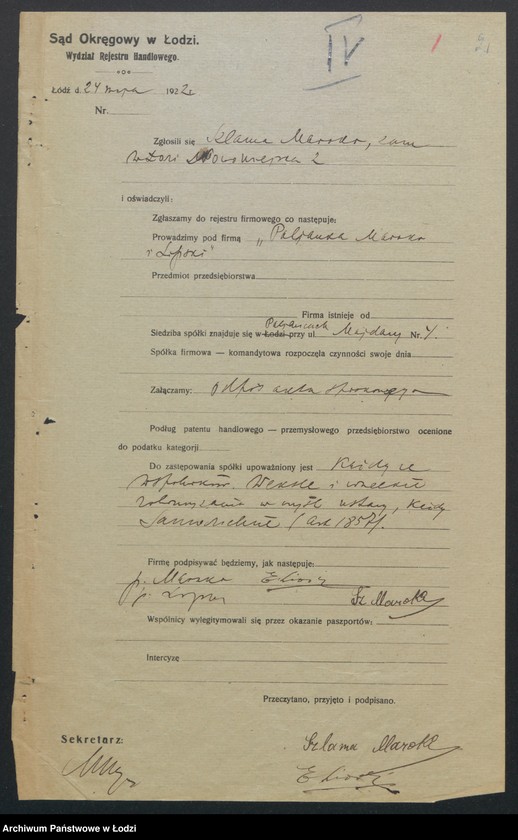 IV
1
Sąd Okręgowy w Łodzi.
Wydział Rejestru Handlowego.
Łódź d. 24 maja 1922 r.
Nr.
Zgłosili się Szlama Maroko, zam
w Łodzi 2
i oświadczyli:
Zgłaszamy do rejestru firmowego co następuje:
Prowadzimy pod firmą „ Maroko
i "
Przedmiot przedsiębiorstwa
Firma istnieje od
Siedziba spółki znajduje się w Łodzi przy ul Nr.
Spółka firmowa — komandytowa rozpoczęła czynności swoje dnia
Załączamy: odpis aktu
Podług patentu handlowego — przemysłowego przedsiębiorstwo ocenione
do podatku kategorji
Do zastępowania spółki upoważniony jest Każdy ze
wspólników. Weksle i wszelkie
zobowiązania w myśl ustawy, każdy
samodzielnie
Firmę podpisywać będziemy, jak następuje:
p. Maroko
p. Sz Maroko
Wspólnicy wylegitymowali się przez okazanie paszportów:
Intercyzę
Przeczytano, przyjęto i podpisano.
Sekretarz:
Szlama Maroko
Archiwum Państwowe w Łodzi